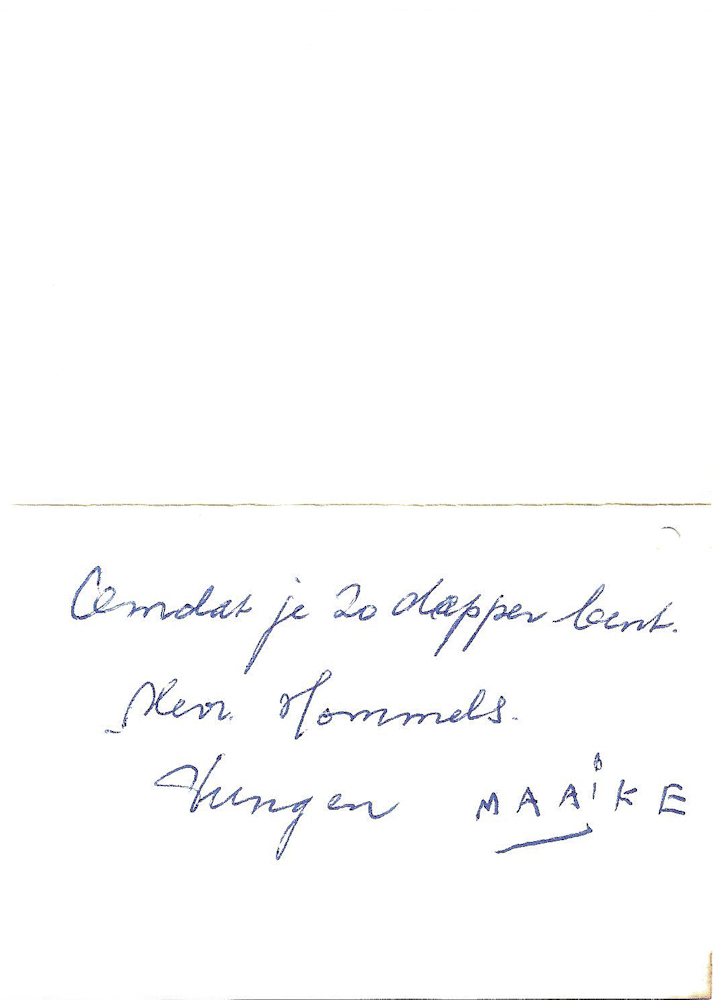 Omdat je zo dapper bent.
Mevr. Hommels.
MAAIKE